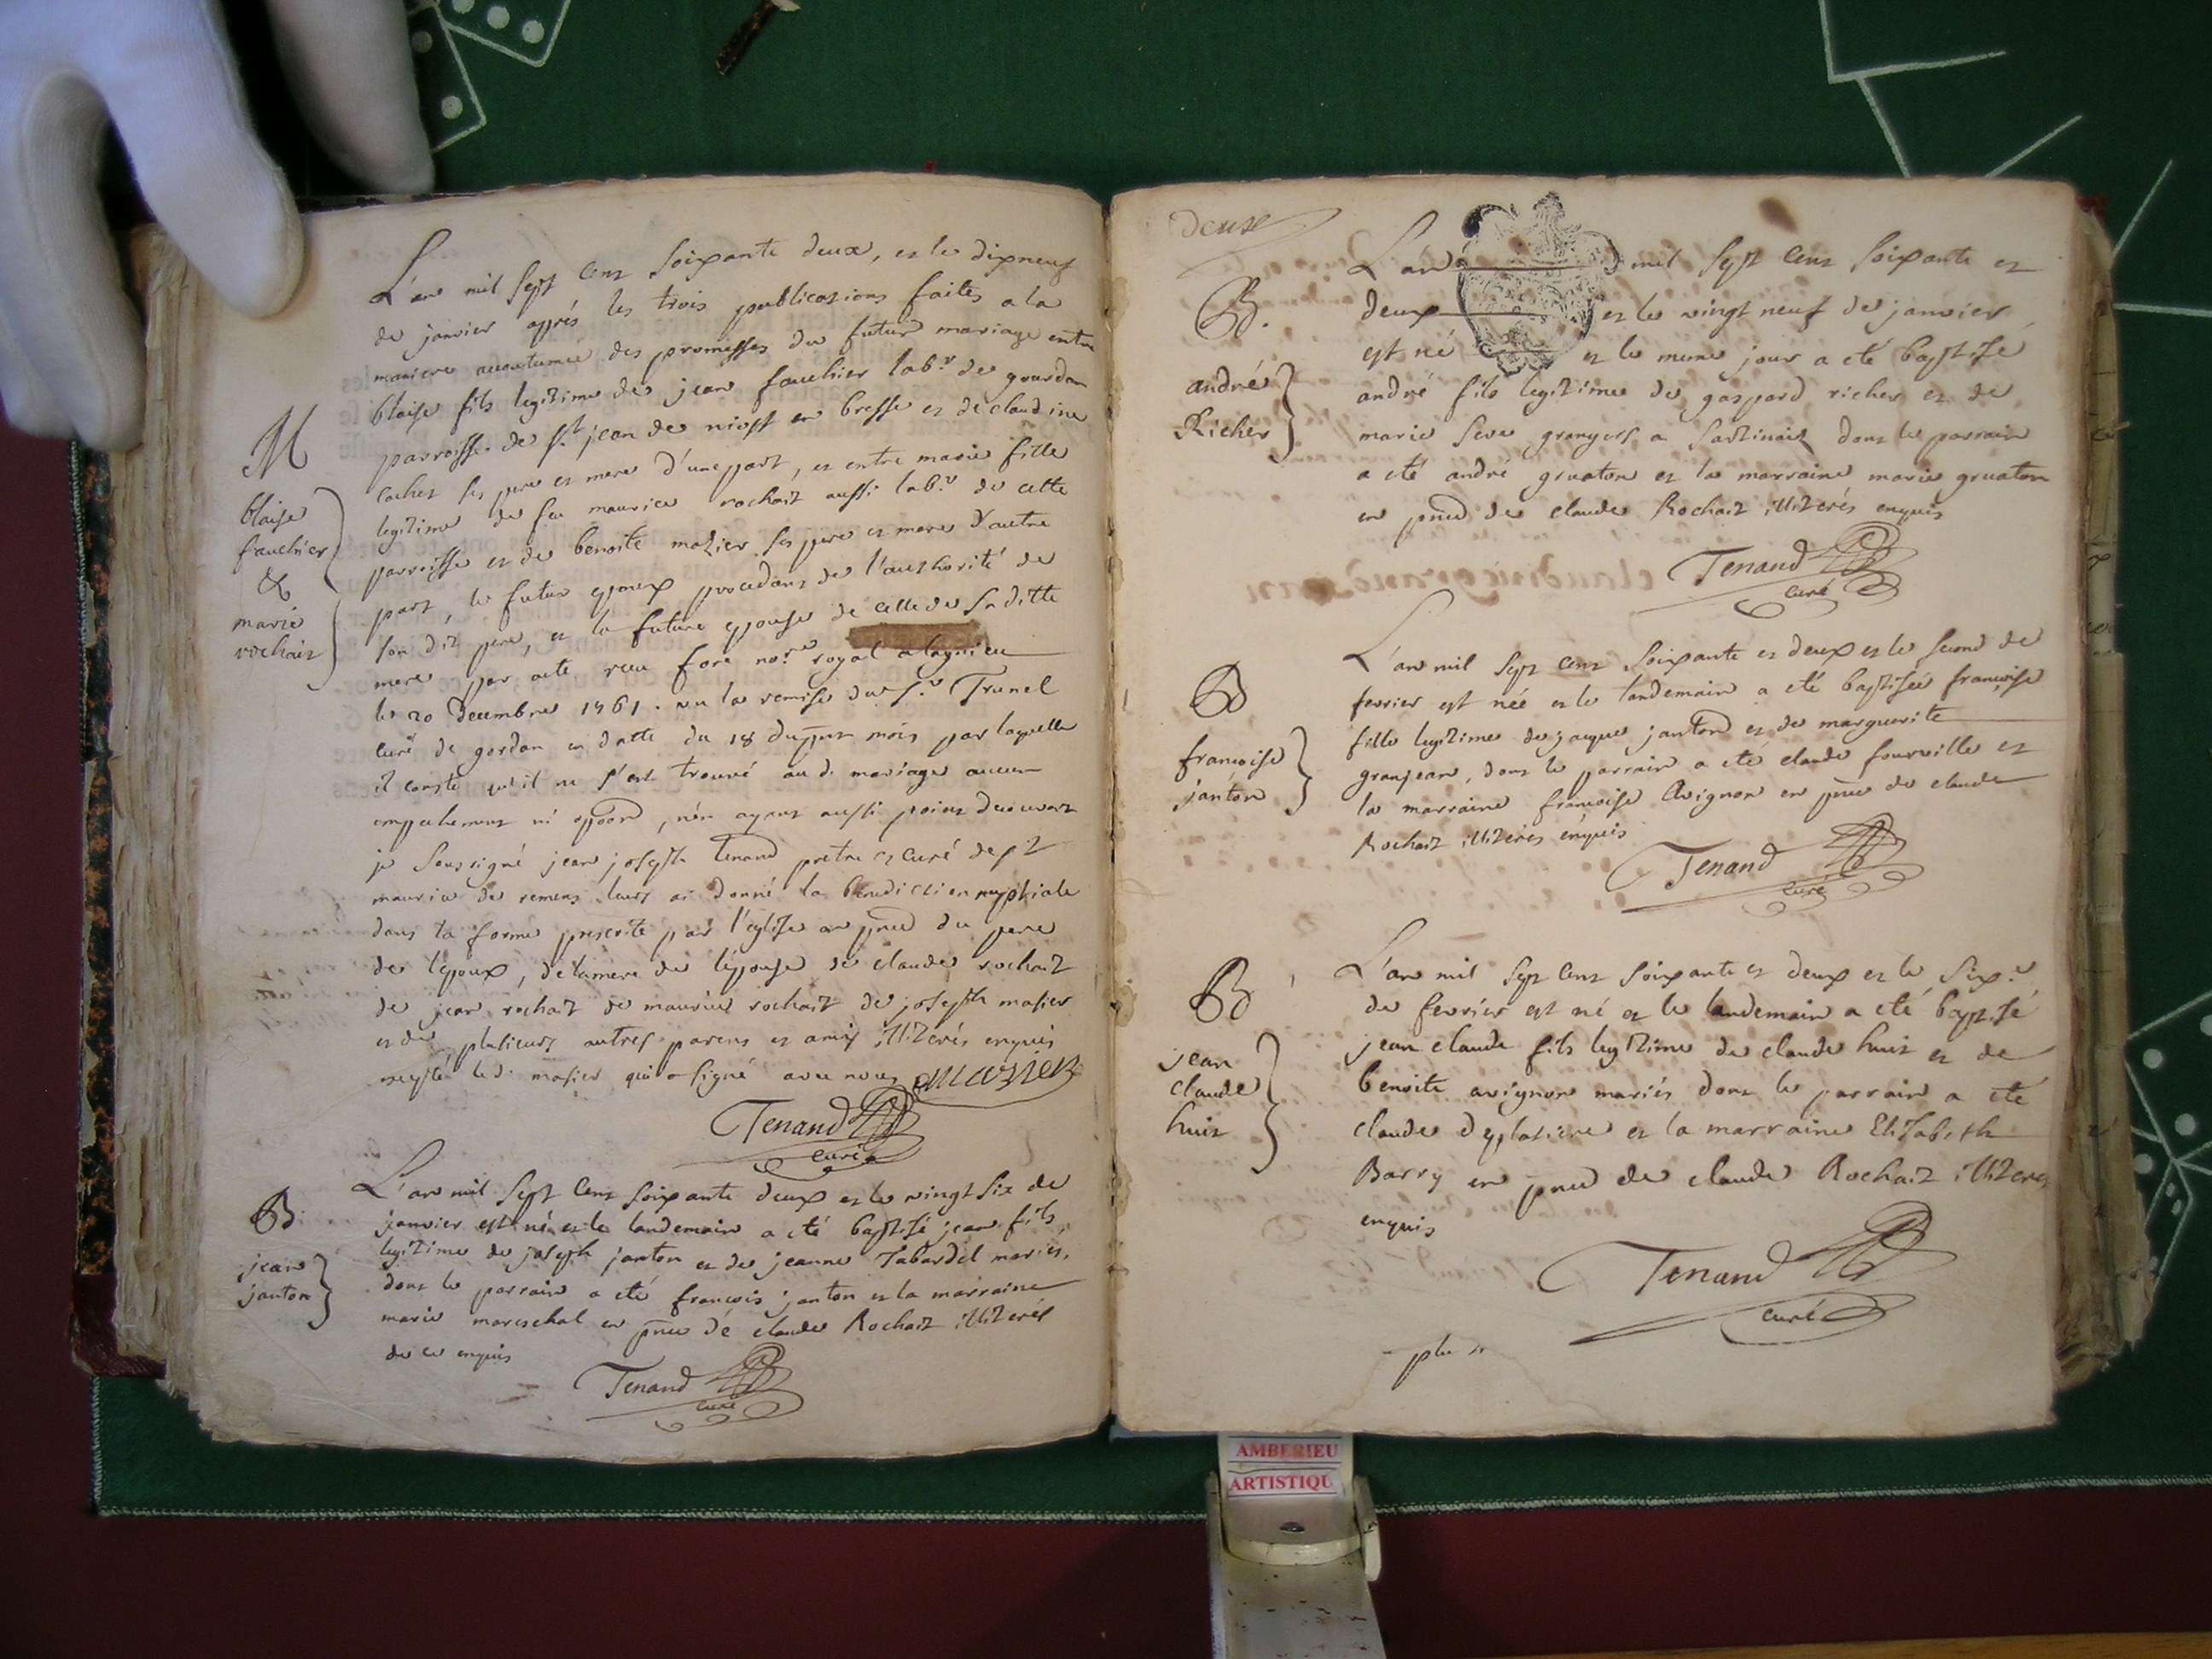 L'an mil sept cent soixante deux, et le dixneuf
de janvier après les trois publications faites a la
maniere accoutumée des promesses du futur mariage entre
blaise fils legitime de jean fauchier lab.r de gourdan
parroisse de s.t jean de niost en bresse et de claudine
cachet ses pere et mere d'une part, et entre marie fille
legitime de feu maurice rochait aussi lab.r de cette
parroisse et de benoite mazier ses pere et mere d'autre
part, le futur epoux procedant de l'authorité de
son dit pere, et la future epouse de celle de sa ditte
mere par acte recu fore not.re royal a lagnieu
le 20 decembre 1761. vu la remise du s.r Trunel
curé de gordan en datte du 18 du pnt mois par laquelle
il conste qu'il ne s'est trouvé au d. mariage aucun
empechement ni oppõn, n'en ayant aussi point decouvert
je soussigné jean joseph tenand pretre et curé de s.t
maurice de remens leurs ai donné la benediction nuptiale
dans la forme prescrite par l'eglise en pnce du pere
de l'epoux, de la mere de l'epouse de claude rochait
de jean rochait de maurice rochait de joseph masier
et de plusieurs autres parens et amis illiterés enquis
excepté led. masier qui a signé avec nous mazier
Tenand
curé
M
blaise
fauchier
&
marie
rochait
L'an mil sept cent soixante deux et le vingt six de
janvier est né et le landemain a eté baptisé jean fils
legitime de joseph janton et de jeanne Tabardel mariés,
dont le parrain a eté francois janton et la marraine
marie mareschal en pnce de claude Rochait illiterés
de ce enquis
Tenand
curé
B
jean
janton
deux
L'an mil sept cent soixante et
deux et le vingt neuf de janvier
est né et le meme jour a eté baptisé
andré fils legitime de gaspard richer et de
marie seve grangers a sartinais dont le parrain
a eté andré gruaton et la marraine marie gruaton
en pnce de claude Rochait illiterés enquis
Tenand
curé
B.
andré
Richer
L'an mil sept cent soixante et deux et le second de
fevrier est née et le landemain a eté baptisée francoise
fille legitime de jacque janton et de marguerite
granjean, dont le parrain a eté claude fourville et
la marraine francoise Avignon en pnce de claude
Rochait illiterés enquis
Tenand
curé
B
francoise
janton
L'an mil sept cent soixante et deux et le six.e
de fevrier est né et le landemain a eté baptisé
jean claude fils legitime de claude huit et de
benoite avignon mariés dont le parrain a eté
claude desplatiere et la marraine Elizabeth
Barry en pnce de claude Rochait illiterés
enquis
Tenand
curé
B
jean
claude
huit
AMBERIEU
ARTISTIQU